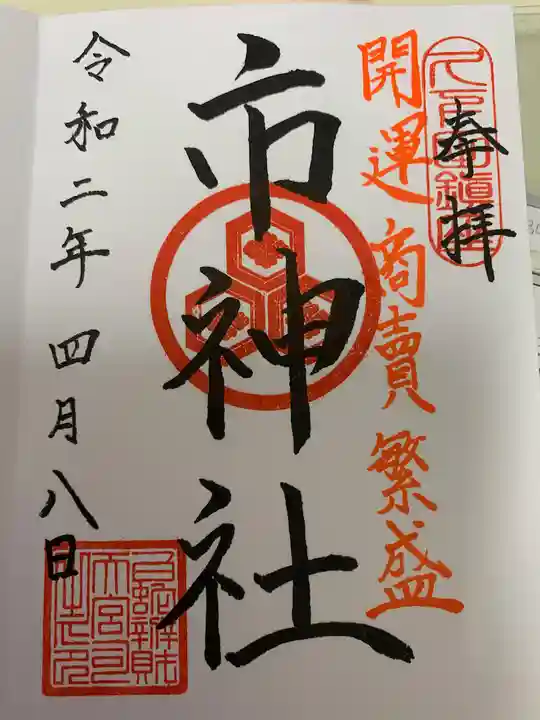 奉拝
開運 商賣繁盛
市神社
令和二年 四月八日